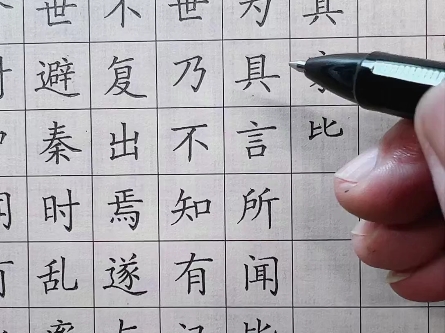 比
为具言所闻
世乃不知有
不复出焉遂
世避秦时乱